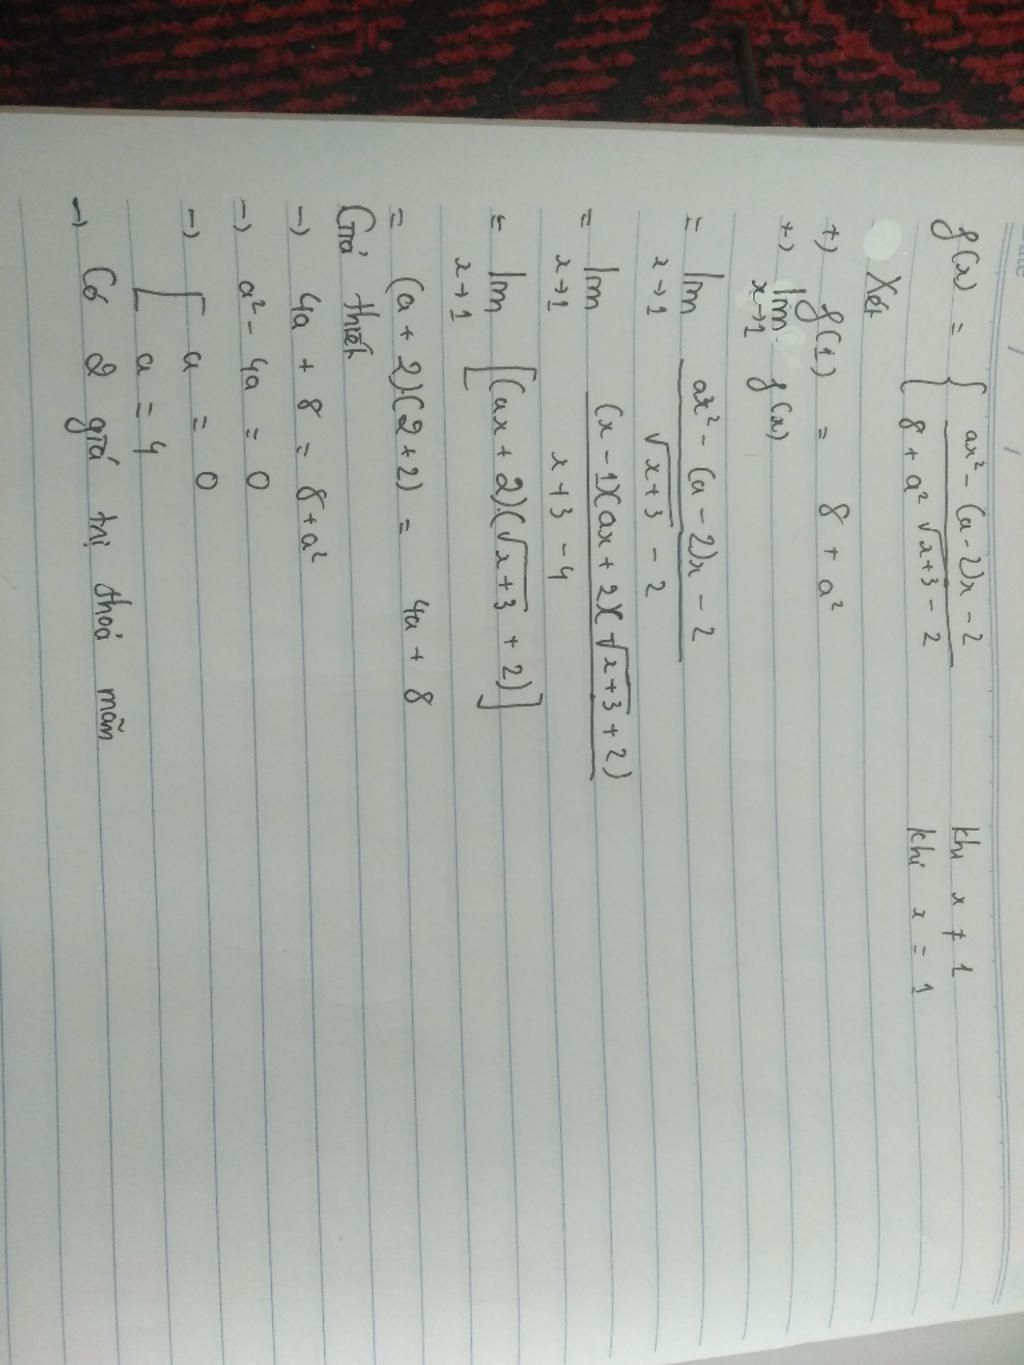 f(x) = { ax² - (a-2)x - 2 / √x+3 - 2 khi x ≠ 1
8 + a² khi x = 1
Xét
+) f(1) = 8 + a²
+) lim x→1 f(x)
= lim x→1 ax² - (a - 2)x - 2 / √x+3 - 2
= lim x→1 (x - 1)(ax + 2)(√x+3 + 2) / x + 3 - 4
= lim x→1 [(ax + 2).(√x+3 + 2)]
= (a + 2).(2 + 2) = 4a + 8
Giả thiết
→ 4a + 8 = 8 + a²
→ a² - 4a = 0
→ [ a = 0
a = 4
→ Có 2 giá trị thoả mãn